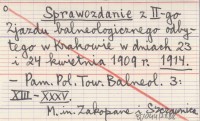 Sprawozdanie z II-go
Zjazdu balneologicznego odby-
tego w Krakowie w dniach 23
i 24 kwietnia 1909 r. 1914.
— Pam. Pol. Tow. Balneol. 3:
XIII - XXXV.
M. in. Zakopane i Szczawnica